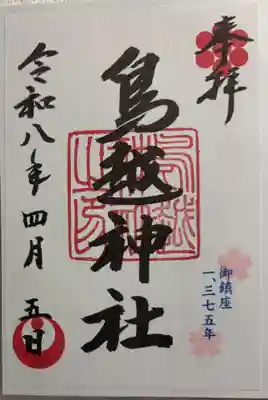 奉拝
鳥越神社
御鎮座
一、三七五年
令和八年 四月 五日